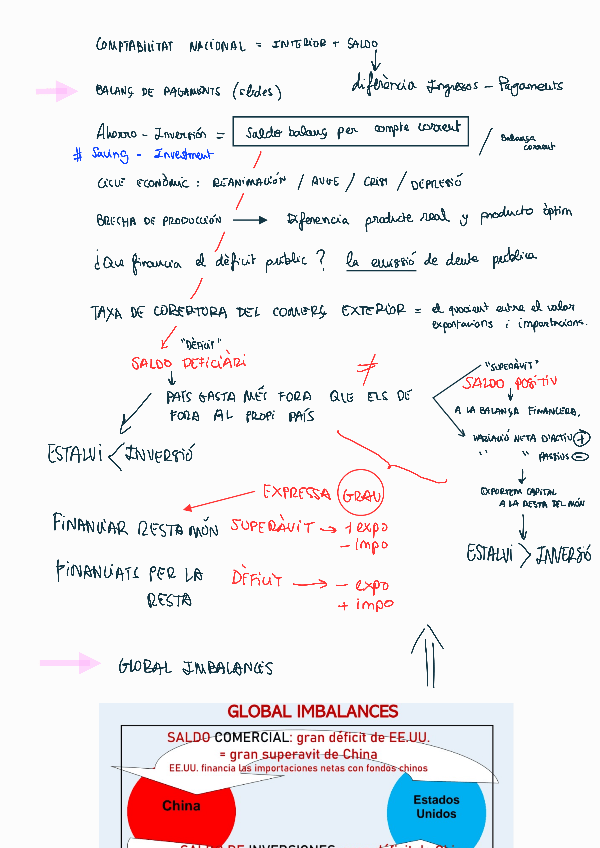 COMPTABILITAT NACIONAL = INTERIOR + SALDO
diferència Ingressos - Pagaments
BALANÇ DE PAGAMENTS (slides)
Ahorro - Inversión = Saldo balanç per compte corrent / Balança corrent
# Saving - Investment
CICLE ECONÒMIC : REANIMACIÓN / AUGE / CRISI / DEPRESSIÓ
BRECHA DE PRODUCCIÓN → Diferencia producte real y producto òptim
¿Que financia el dèficit públic ? la emissió de deute pública
TAXA DE COBERTURA DEL COMERÇ EXTERIOR = el quocient entre el valor
exportacions i importacions.
"DÈFICIT"
SALDO DEFICIÀRI
≠
PAÍS GASTA MÉS FORA QUE ELS DE
FORA AL PROPI PAÍS
ESTALVI < INVERSIÓ
"SUPERÀVIT"
SALDO POSITIU
A LA BALANÇA FINANCERA,
VARIACIÓ NETA D'ACTIU +
" " PASSIUS -
EXPORTEM CAPITAL
A LA RESTA DEL MÓN
ESTALVI > INVERSIÓ
EXPRESSA GRAU
FINANÇAR RESTA MÓN SUPERÀVIT → + expo
- impo
FINANÇATS PER LA
RESTA
DÈFICIT → - expo
+ impo
GLOBAL IMBALANCES
GLOBAL IMBALANCES
SALDO COMERCIAL: gran déficit de EE.UU.
= gran superavit de China
EE.UU. financia las importaciones netas con fondos chinos
China
Estados
Unidos